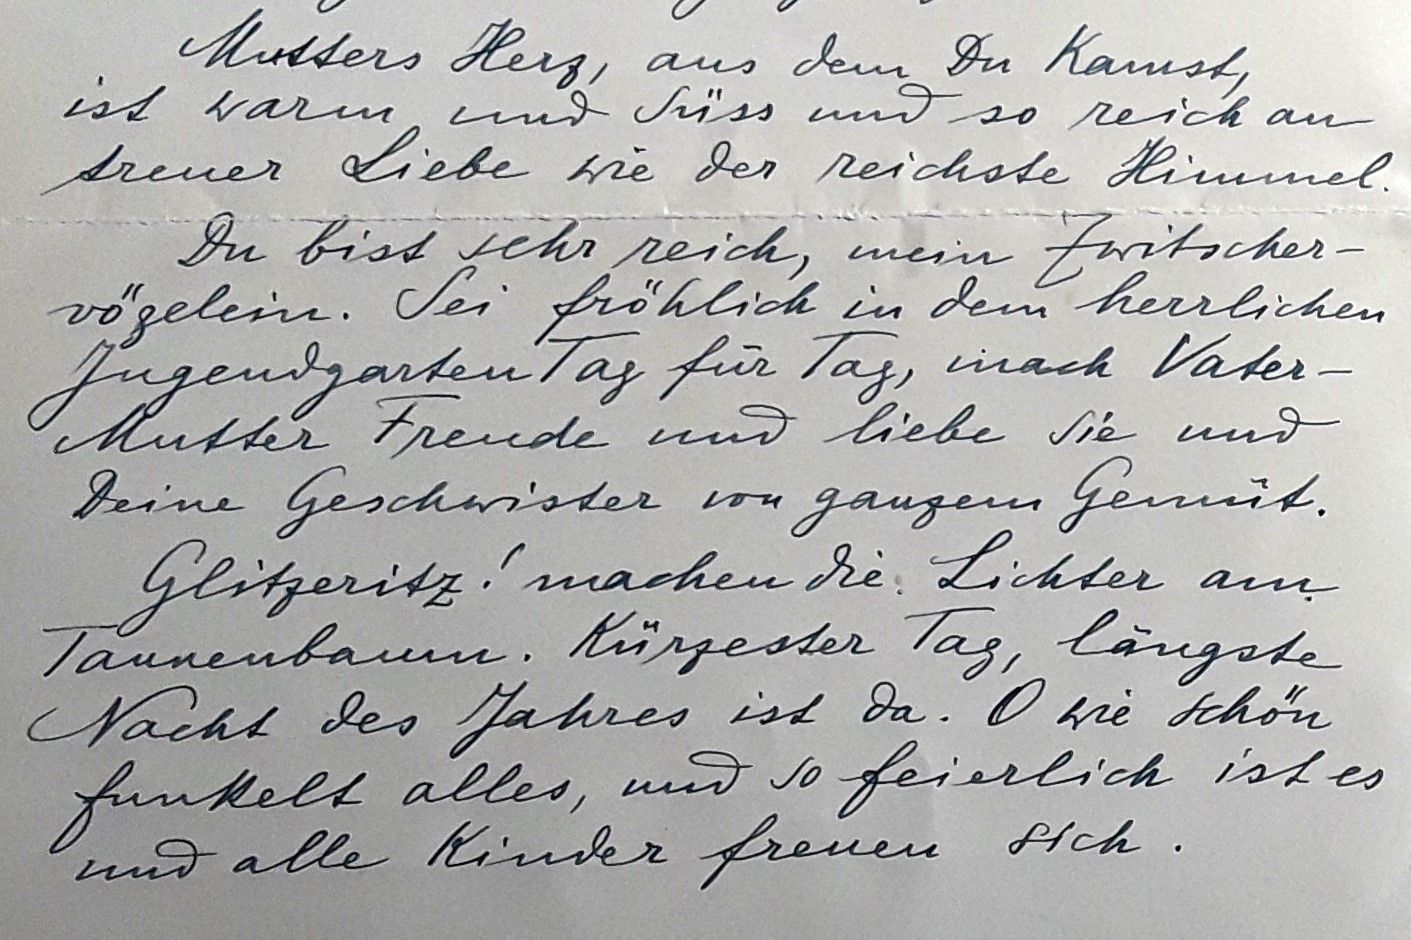 Mutters Herz, aus dem Du Kamst,
ist warm und süss und so reich an
treuer Liebe wie der reichste Himmel.
Du bist sehr reich, mein Zwitscher-
vögelein. Sei fröhlich in dem herrlichen
Jugendgarten Tag für Tag, mach Vater-
Mutter Freude und liebe sie und
Deine Geschwister von ganzem Gemüt.
Glitzeritz! machen die Lichter am
Tannenbaum. Kürzester Tag, längste
Nacht des Jahres ist da. O wie schön
funkelt alles, und so feierlich ist es
und alle Kinder freuen sich.